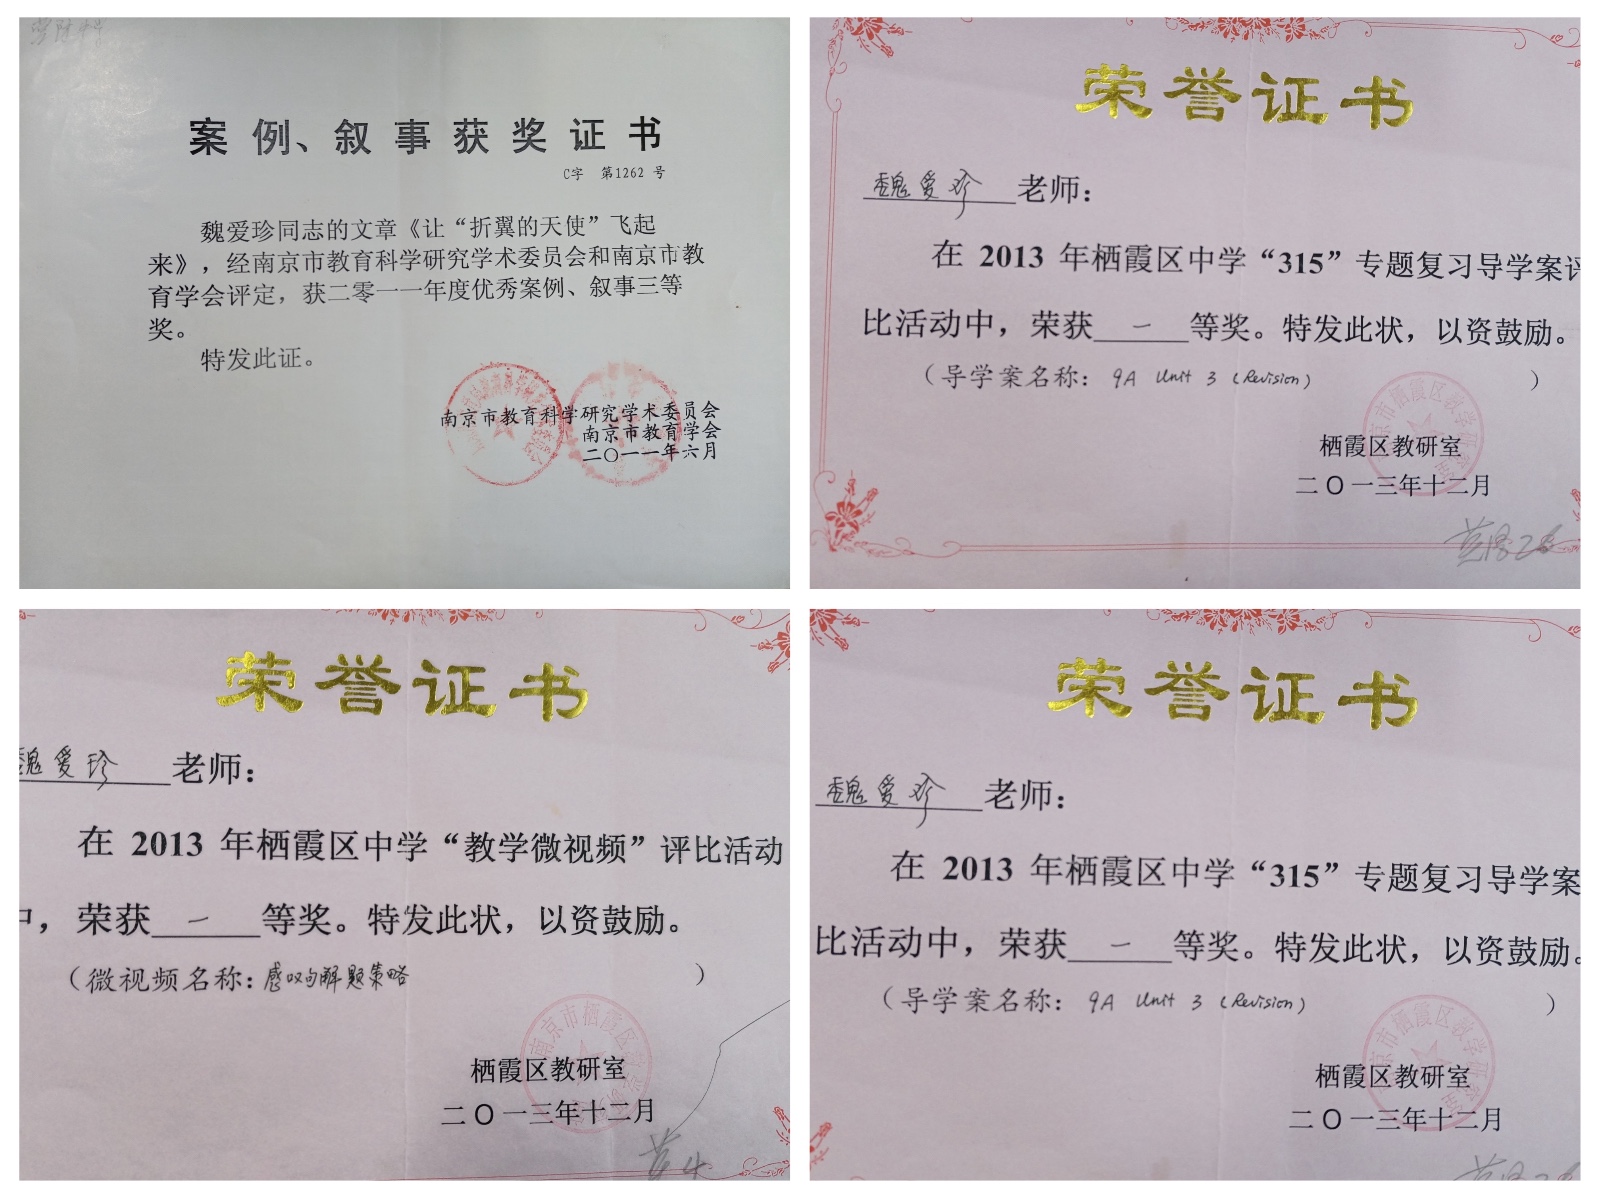 案例、叙事获奖证书
C字 第1262号
魏爱珍同志的文章《让“折翼的天使”飞起
来》，经南京市教育科学研究学术委员会和南京市教
育学会评定，获二零一一年度优秀案例、叙事三等
奖。
特发此证。
南京市教育科学研究学术委员会
南京市教育学会
二〇一一年六月
荣誉证书
魏爱珍 老师：
在 2013 年栖霞区中学“315”专题复习导学案评
比活动中，荣获 一 等奖。特发此状，以资鼓励。
（导学案名称：9A Unit 3 (Revision) ）
栖霞区教研室
二〇一三年十二月
荣誉证书
魏爱珍 老师：
在 2013 年栖霞区中学“教学微视频”评比活动
中，荣获 一 等奖。特发此状，以资鼓励。
（微视频名称：感叹句解题策略 ）
栖霞区教研室
二〇一三年十二月
荣誉证书
魏爱珍 老师：
在 2013 年栖霞区中学“315”专题复习导学案
比活动中，荣获 一 等奖。特发此状，以资鼓励。
（导学案名称：9A Unit 3 (Revision) ）
栖霞区教研室
二〇一三年十二月